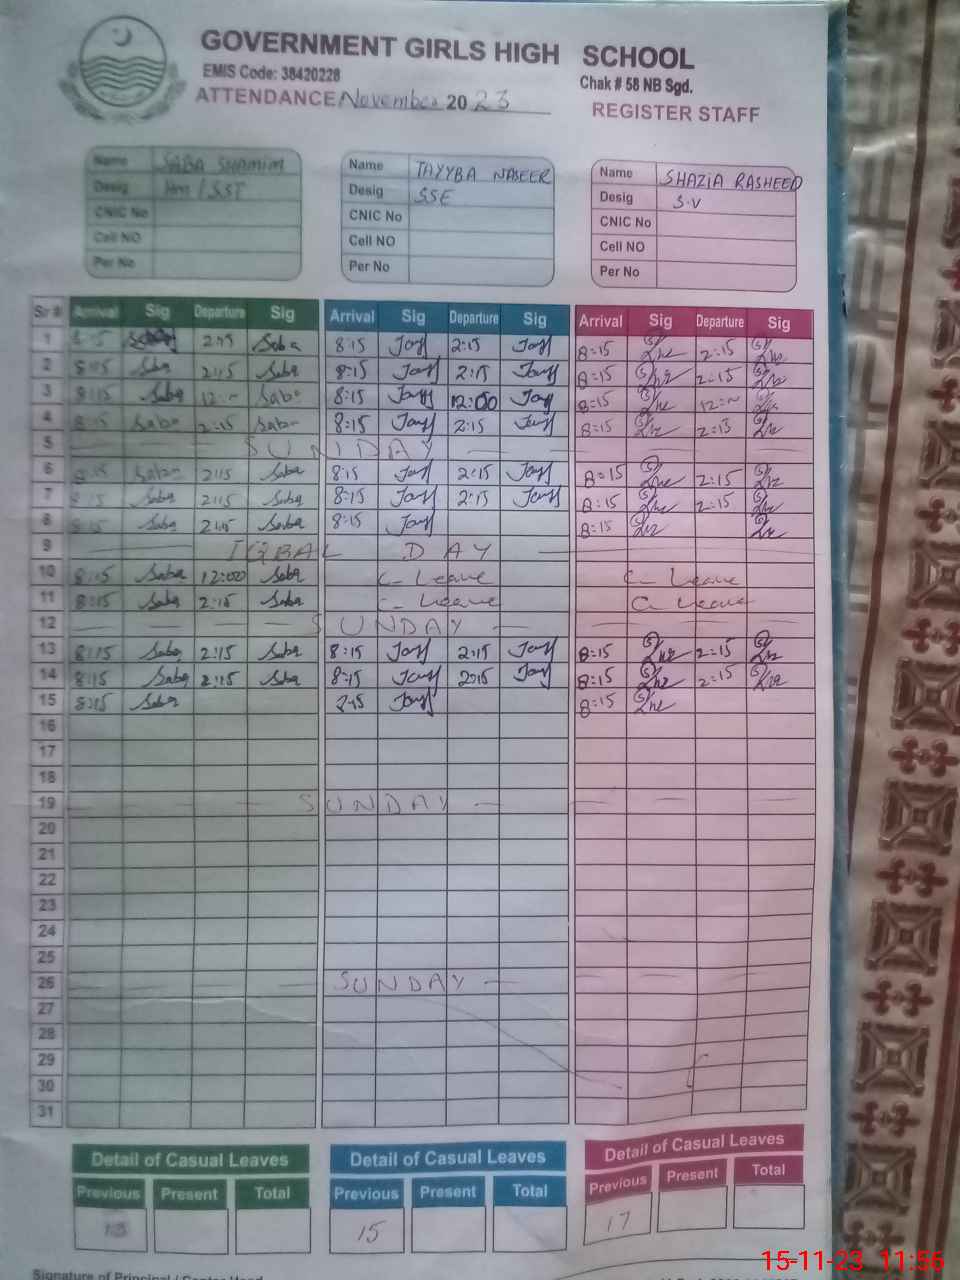 GOVERNMENT GIRLS HIGH SCHOOL
EMIS Code: 38420228
Chak # 58 NB Sgd.
ATTENDANCE November 2023
REGISTER STAFF
Name SABA SHAMIM
Desig Hm/SST
CNIC No
Cell NO
Per No
Name TAYYBA NASEER
Desig SSE
CNIC No
Cell NO
Per No
Name SHAZIA RASHEED
Desig S.V
CNIC No
Cell NO
Per No
Sr # Arrival Sig Departure Sig Arrival Sig Departure Sig Arrival Sig Departure Sig
1 2:15 Saba 8:15 2:15 8:15 2:15
2 8:15 Saba 2:15 Saba 8:15 2:15 8:15 2:15
3 8:15 Saba 12:~ Saba 8:15 12:00 8:15 12:~
4 8:15 Saba 2:15 Saba 8:15 2:15 8:15 2:15
5 SUNDAY
6 8:15 Saba 2:15 Saba 8:15 2:15 8:15 2:15
7 8:15 Saba 2:15 Saba 8:15 2:15 8:15 2:15
8 8:15 Saba 2:15 Saba 8:15 8:15
9 IQBAL DAY
10 8:15 Saba 12:00 Saba C- Leave C- Leave
11 8:15 Saba 2:15 Saba C- Leave C- Leave
12 SUNDAY
13 8:15 Saba 2:15 Saba 8:15 2:15 8:15 2:15
14 8:15 Saba 2:15 Saba 8:15 2:15 8:15 2:15
15 8:15 Saba 8:15
16
17
18
19 SUNDAY
20
21
22
23
24
25
26 SUNDAY
27
28
29
30
31
Detail of Casual Leaves
Previous Present Total
Detail of Casual Leaves
Previous Present Total
15
Detail of Casual Leaves
Previous Present Total
17
Signature of Principal / Center Head
15-11-23 11:56